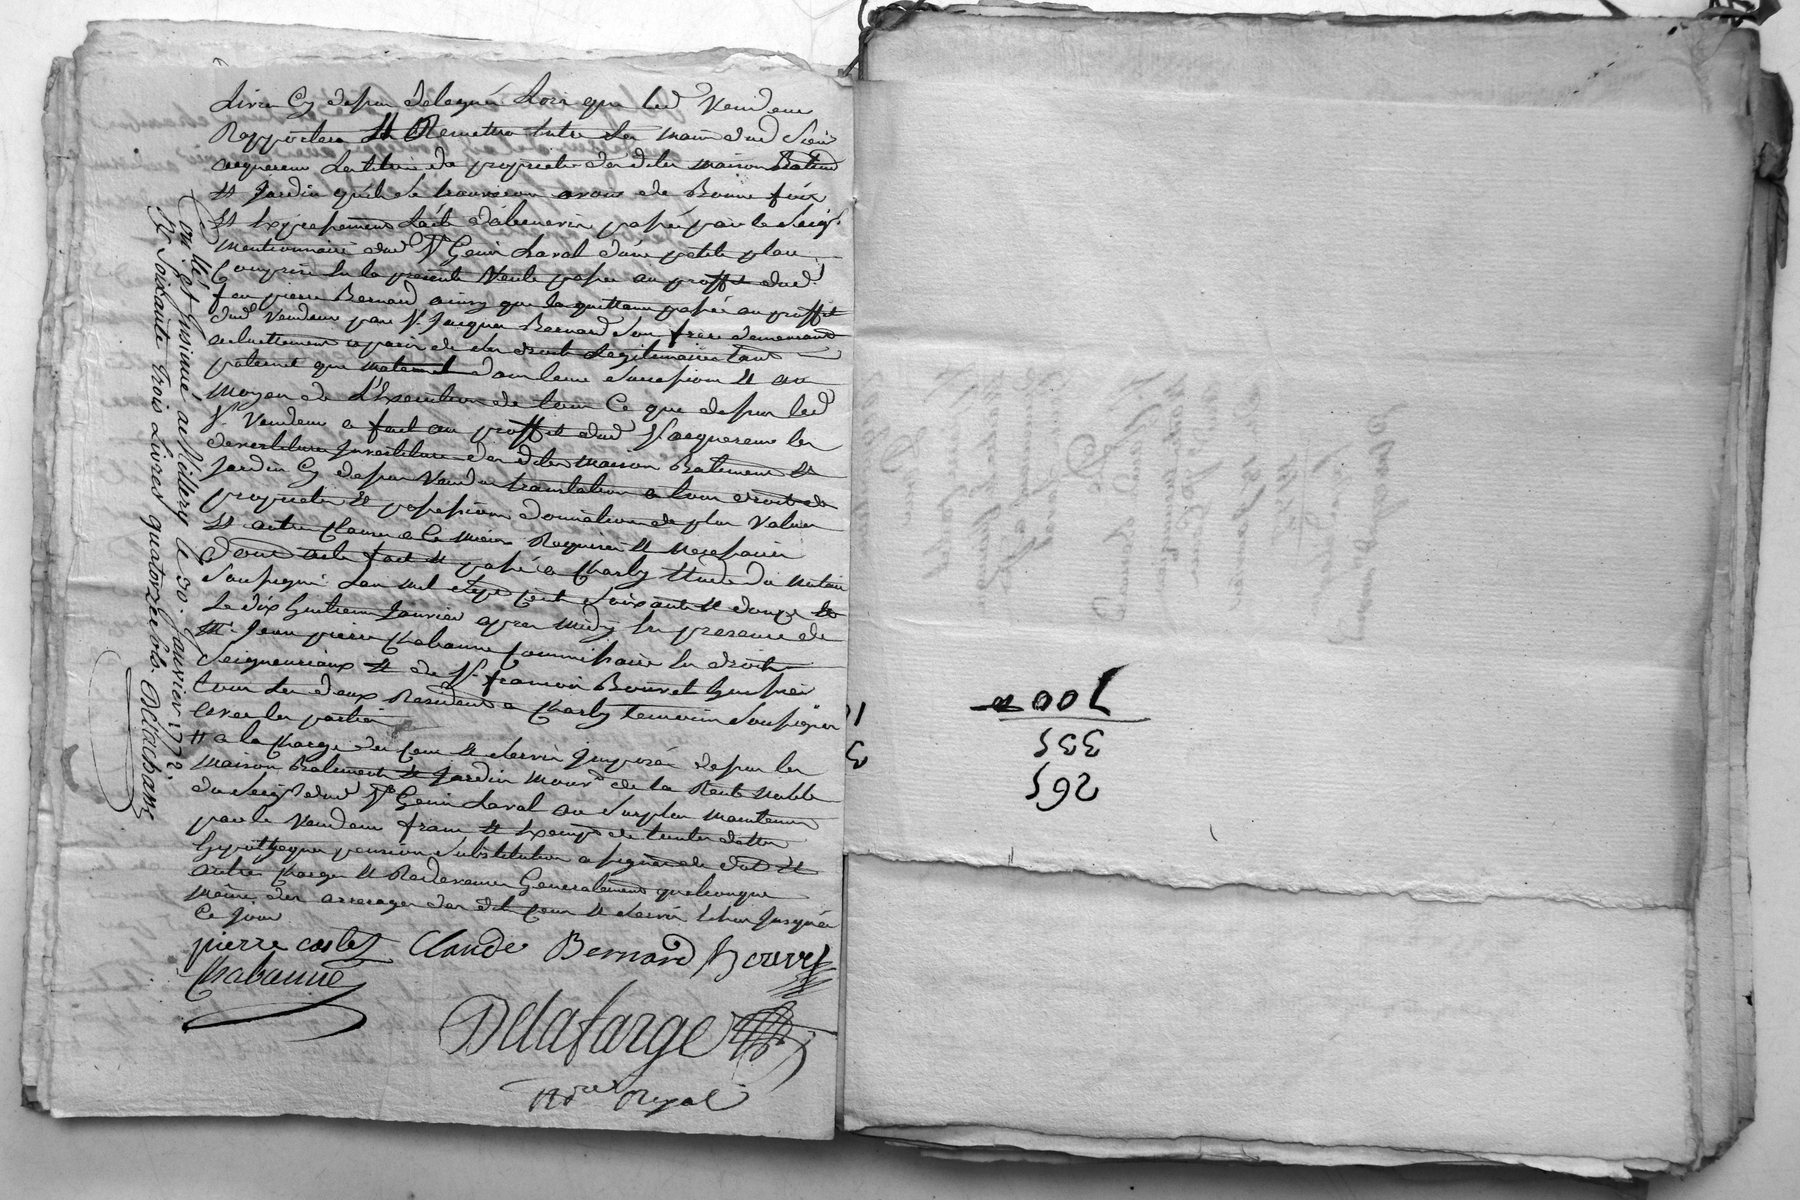 Livres Cy dessus deleguée Lors que led Vendeur
Rapportera Et Remettra Entre Les mains dud Sieur
acquereur Les titres de proprieté desdites maison Batimt
Et Jardin qu'il se trouveront avoir de Bonne foix
Et Expressement L'acte d'abenevis passé par le Seigr
mentionnaire dud St Genis Laval d'une petite place
Comprise En la presente Vente passée au proffit dud
feu pierre Bernard ainsy que la quittance passée au proffit
dud Vendeur par Sr Jacques Bernard son frere demeurant
actuellement a paris de ses droits Legitimaires tant
paternel que maternel dans leurs successions Et au
moyen de L'Execution de tout Ce que dessus led
Sr Vendeur a fait au proffit dud Sr acquereur les
devestiture Investiture desdites maison Batiments Et
Jardin Cy dessus Vendus translation a tous droits de
proprieté Et possession donnation de plus Value
Et autres Clauses a Ce mieux Requises Et necessaires
dont acte fait Et passé a Charly Etude du Notaire
Soussigné L'an mil sept Cent Soixante Et douze Et
Le dix huitieme Janvier apres midy En presence de
Mr Jean pierre Chabanne Commissaire En droits
Seigneuriaux Et de Sr francois Bouvet huissier
tous Les deux Residents a Charly temoins Soussignés
avec les parties
Et a la Charge des Cens Et Servis Imposés dessus les
maison Batiments Et Jardin mouvt de la Rente Noble
du Seigr dud St Genis Laval au surplus maintenus
par le Vendeur francs Et Exempts de toutes dettes
hypotheques pension substitution assignat de dot Et
autres Charges Et Redevances Generalement quelconques
même des arrerages desdits Cens Et Servis Echus Jusqu'à
Ce Jour
pierre Claude Bernard Bouvet
Chabanne
Delafarge
Nore Royal
Con.llé et Insinué a Millery le 30. Janvier 1772.
R. Soixante trois Livres quatorze sols.
700 #
335
265